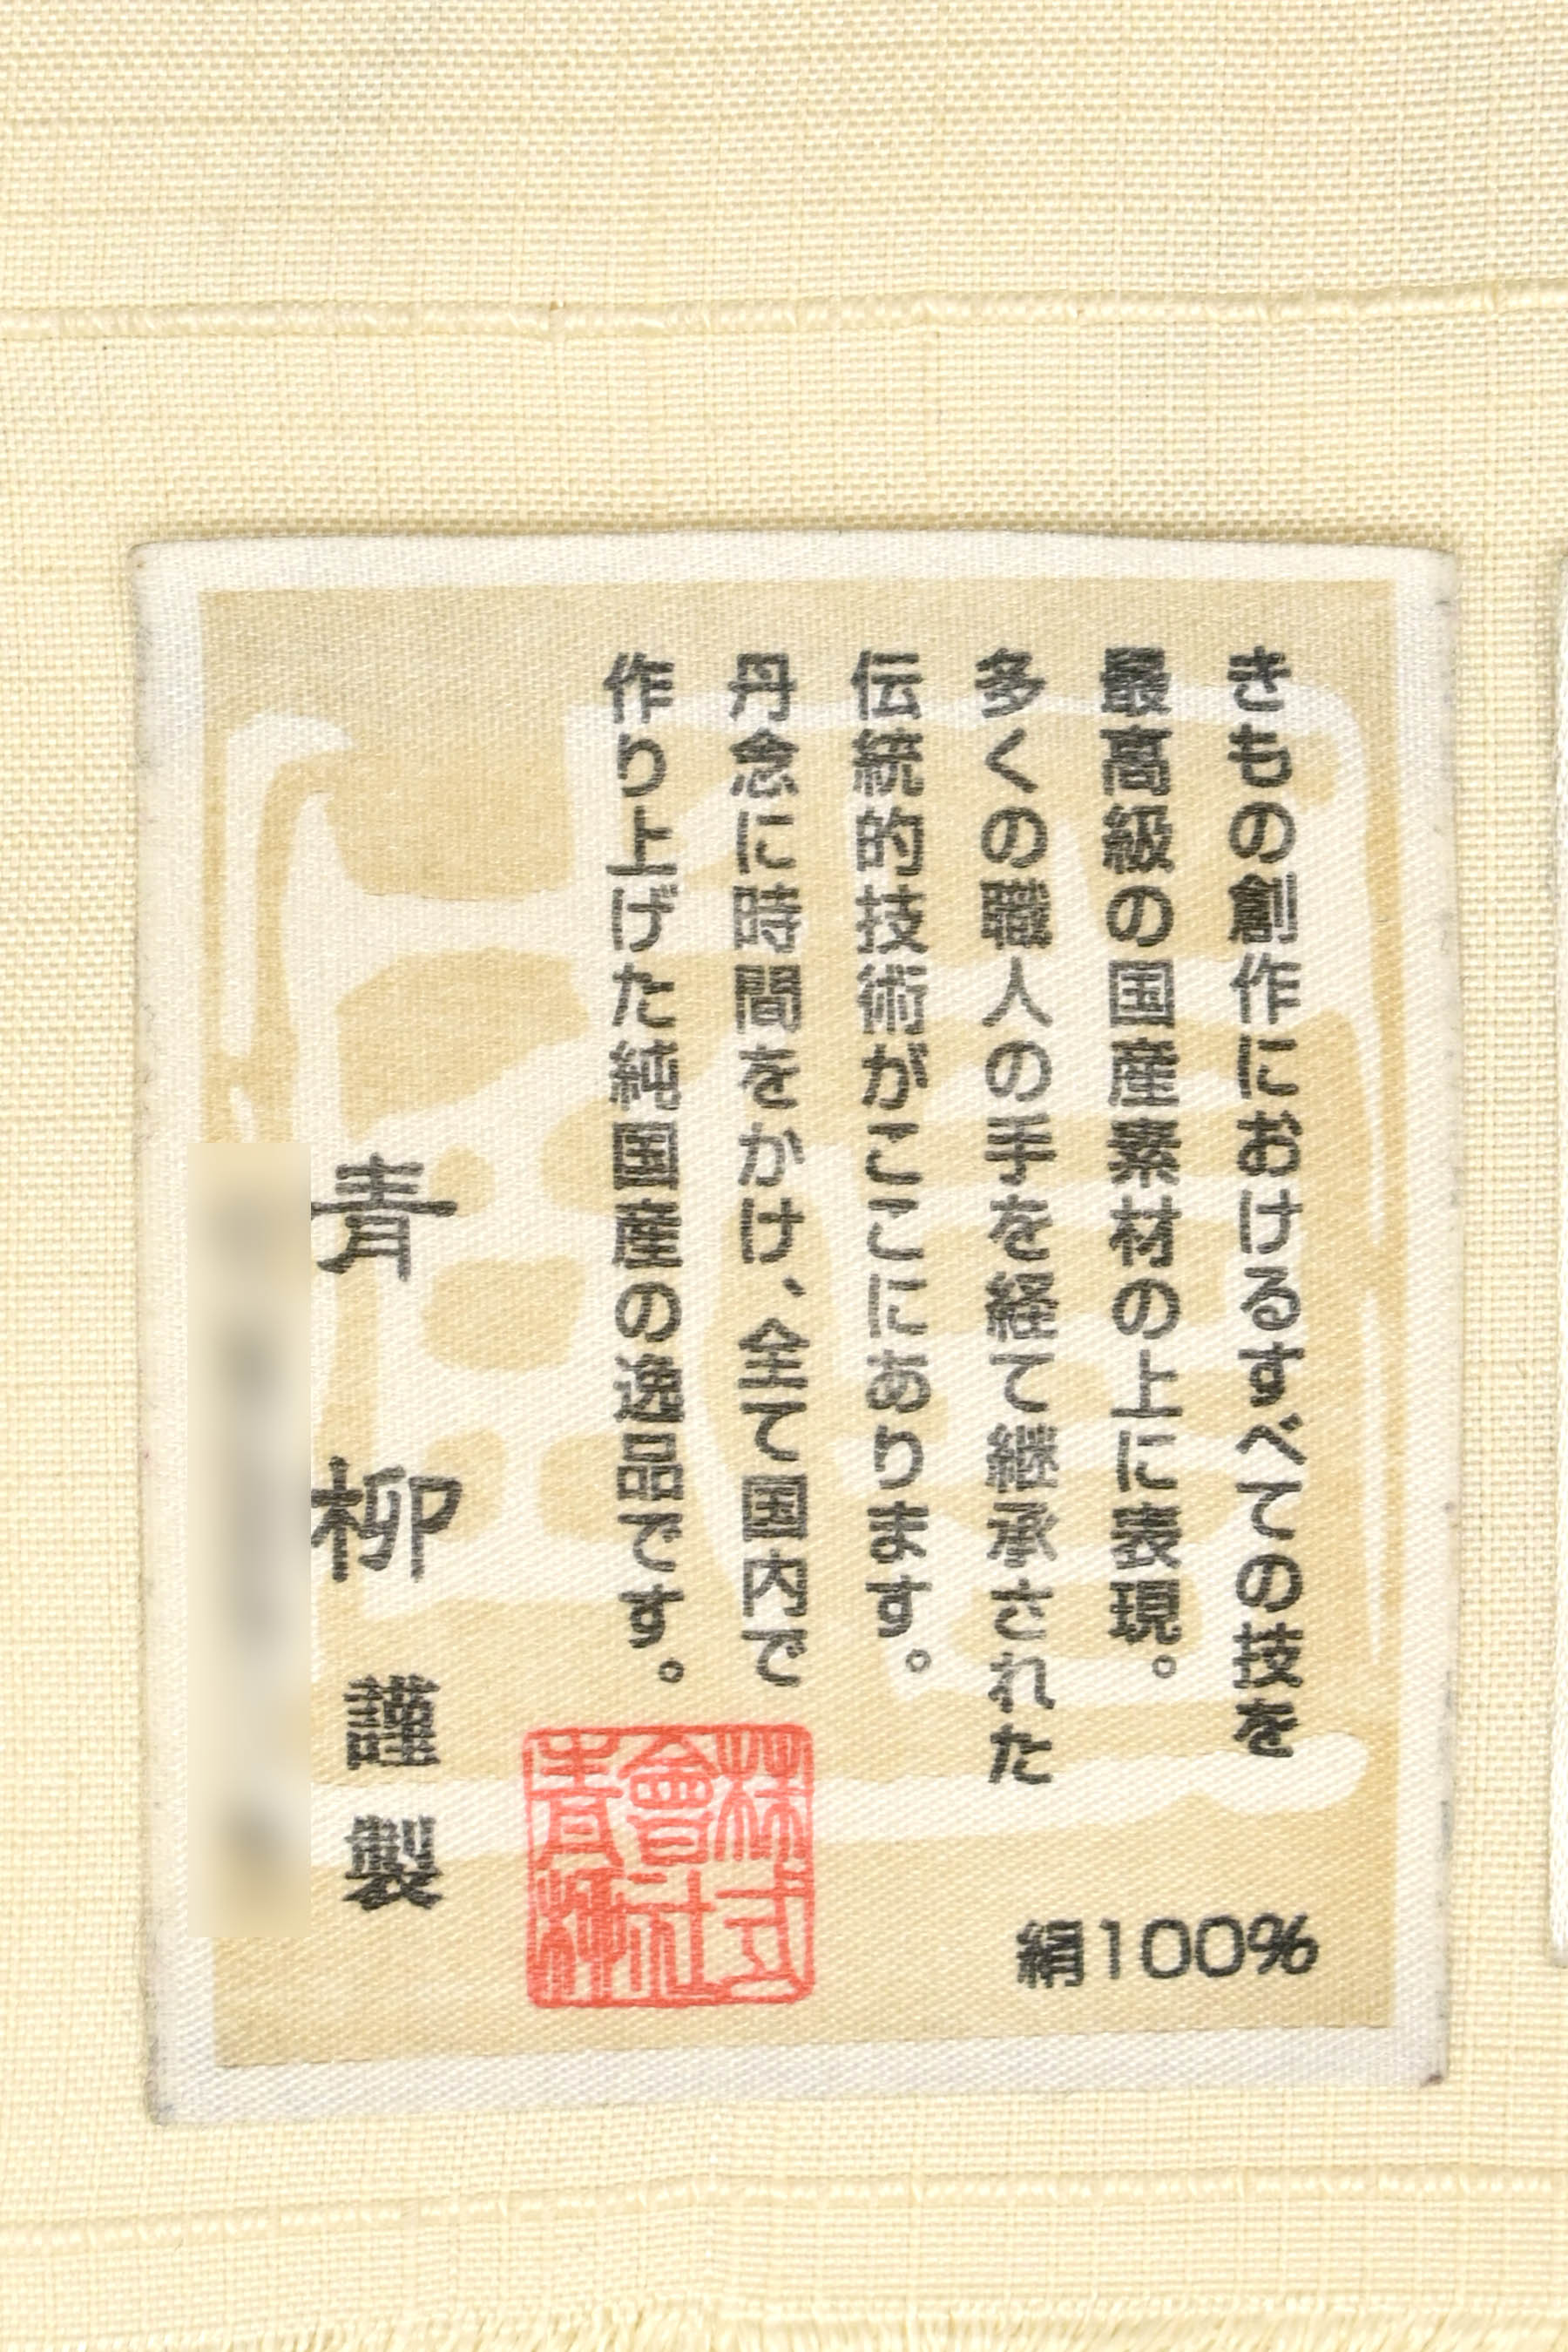 きもの創作におけるすべての技を
最高級の国産素材の上に表現。
多くの職人の手を経て継承された
伝統的技術がここにあります。
丹念に時間をかけ、全て国内で
作り上げた純国産の逸品です。
青柳謹製
株式
會社
青柳
絹100%